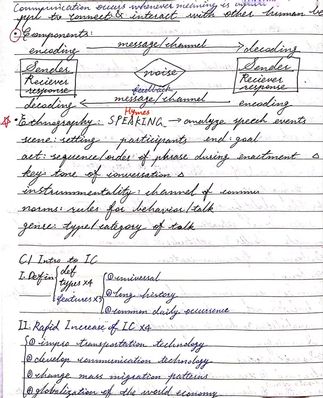 Communication occurs whenever meaning is
ppl to connect & interact with other human
Components:
encoding message/channel decoding
Sender Sender
Reciever noise Reciever
response response
feedback
decoding message/channel encoding
Hymes
Ethnography: SPEAKING → analyze speech events
scene: setting participants end: goal
act: sequence/order of phrase during enactment
key: tone of conversation
instrumentality: channel of commun
norms: rules for behavior/talk
genre: type/category of talk
C1 Intro to IC
I. Defin def
types x4 ① universal
features x3 ② long history
③ common daily occurrence
II. Rapid Increase of IC x4
① impro transportation technology
② develop communication technology
③ change mass migration patterns
④ globalization of the world economy